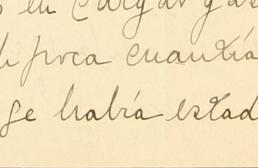 en cargar gas
poca cuantía
ge había estad